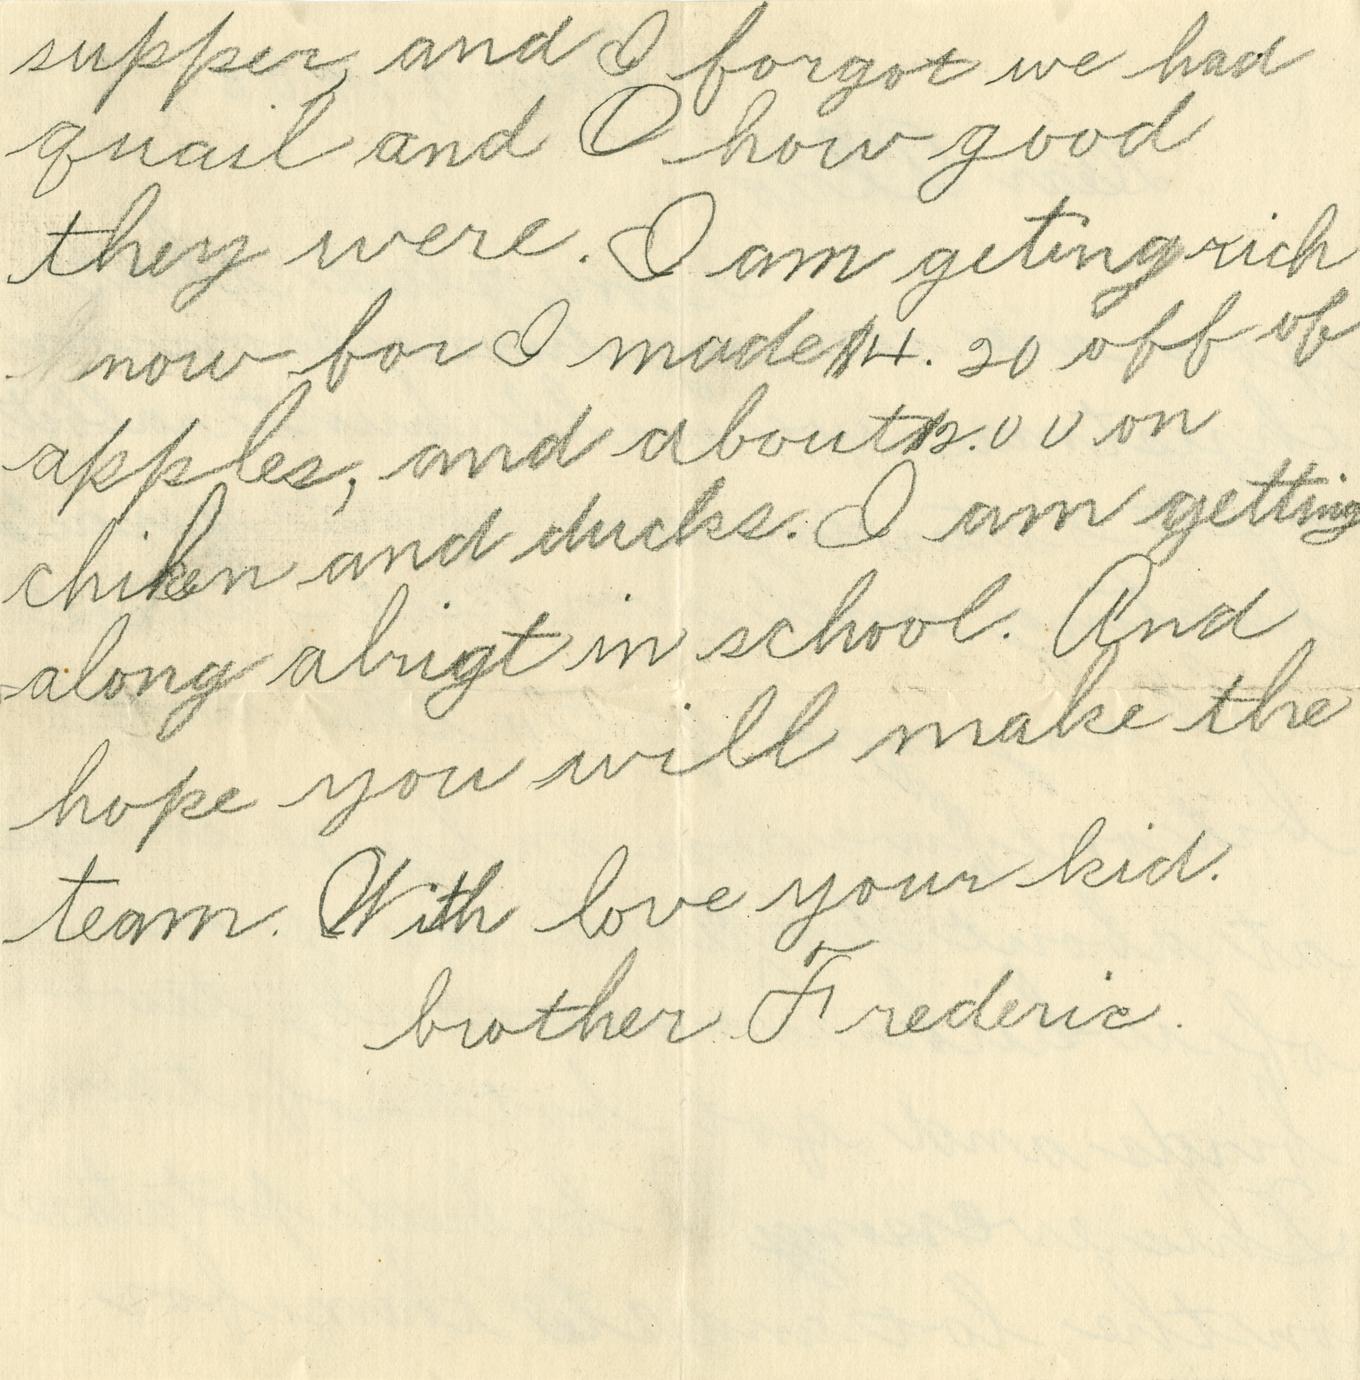 supper, and I forgot we had
quail and O how good
they were. I am geting rich
now for I made $4.20 off of
apples, and about $2.00 on
chiken and ducks. I am getting
along alrigt in school. And
hope you will make the
team. With love your kid.
brother Frederic.